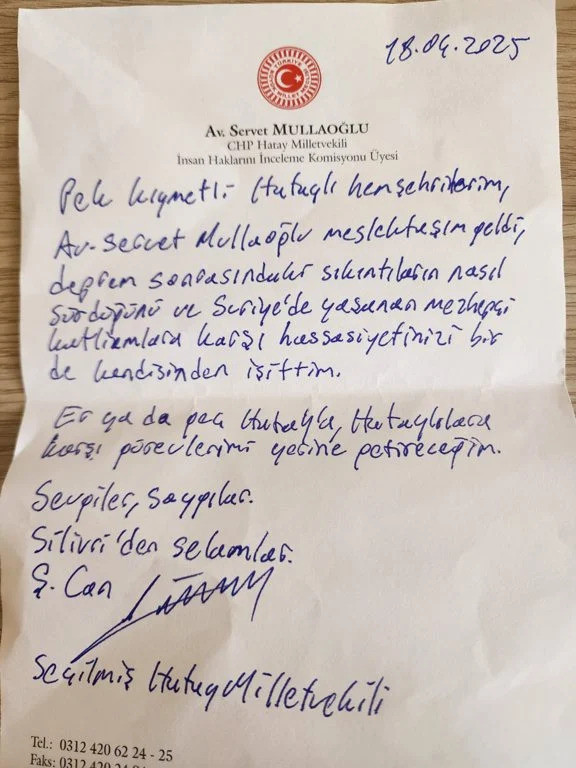 18.04.2025
TÜRKİYE
Av. Servet MULLAOĞLU
CHP Hatay Milletvekili
İnsan Haklarını İnceleme Komisyonu Üyesi
Pek kıymetli Hataylı hemşehrilerim,
Av. Servet Mullaoğlu meslektaşım geldi,
deprem sonrasındaki sıkıntıların nasıl
sürdüğünü ve Suriye'de yaşanan mezhepçi
katliamlara karşı hassasiyetinizi bir
de kendisinden işittim.
Er ya da geç Hatay'a, Hataylılara
karşı görevlerimi yerine getireceğim.
Sevgiler, saygılar.
Silivri'den selamlar.
Ş. Can
Seçilmiş Hatay Milletvekili
Tel.: 0312 420 62 24 - 25
Faks: 0312 420